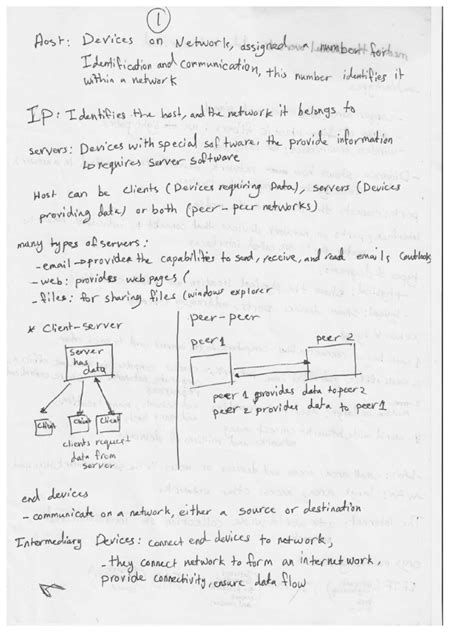 1
Host: Devices on Network, assigned a number for
Identification and communication, this number identifies it
within a network
IP: Identifies the host, and the network it belongs to
servers: Devices with special software, the provide information
↳ requires server software
Host can be clients (Devices requiring Data), servers (Devices
providing data) or both (peer-peer networks)
many types of servers:
- email → provides the capabilities to send, receive, and read emails
- web: provides web pages (
- files: for sharing files (windows explorer
* Client-Server
server
has
data
Client Client Client
clients request
data from
server
peer-peer
peer 1 peer 2
peer 1 provides data to peer 2
peer 2 provides data to peer 1
end devices
- communicate on a network, either a source or destination
Intermediary Devices: connect end devices to network,
- they connect network to form an internetwork,
provide connectivity, ensure data flow